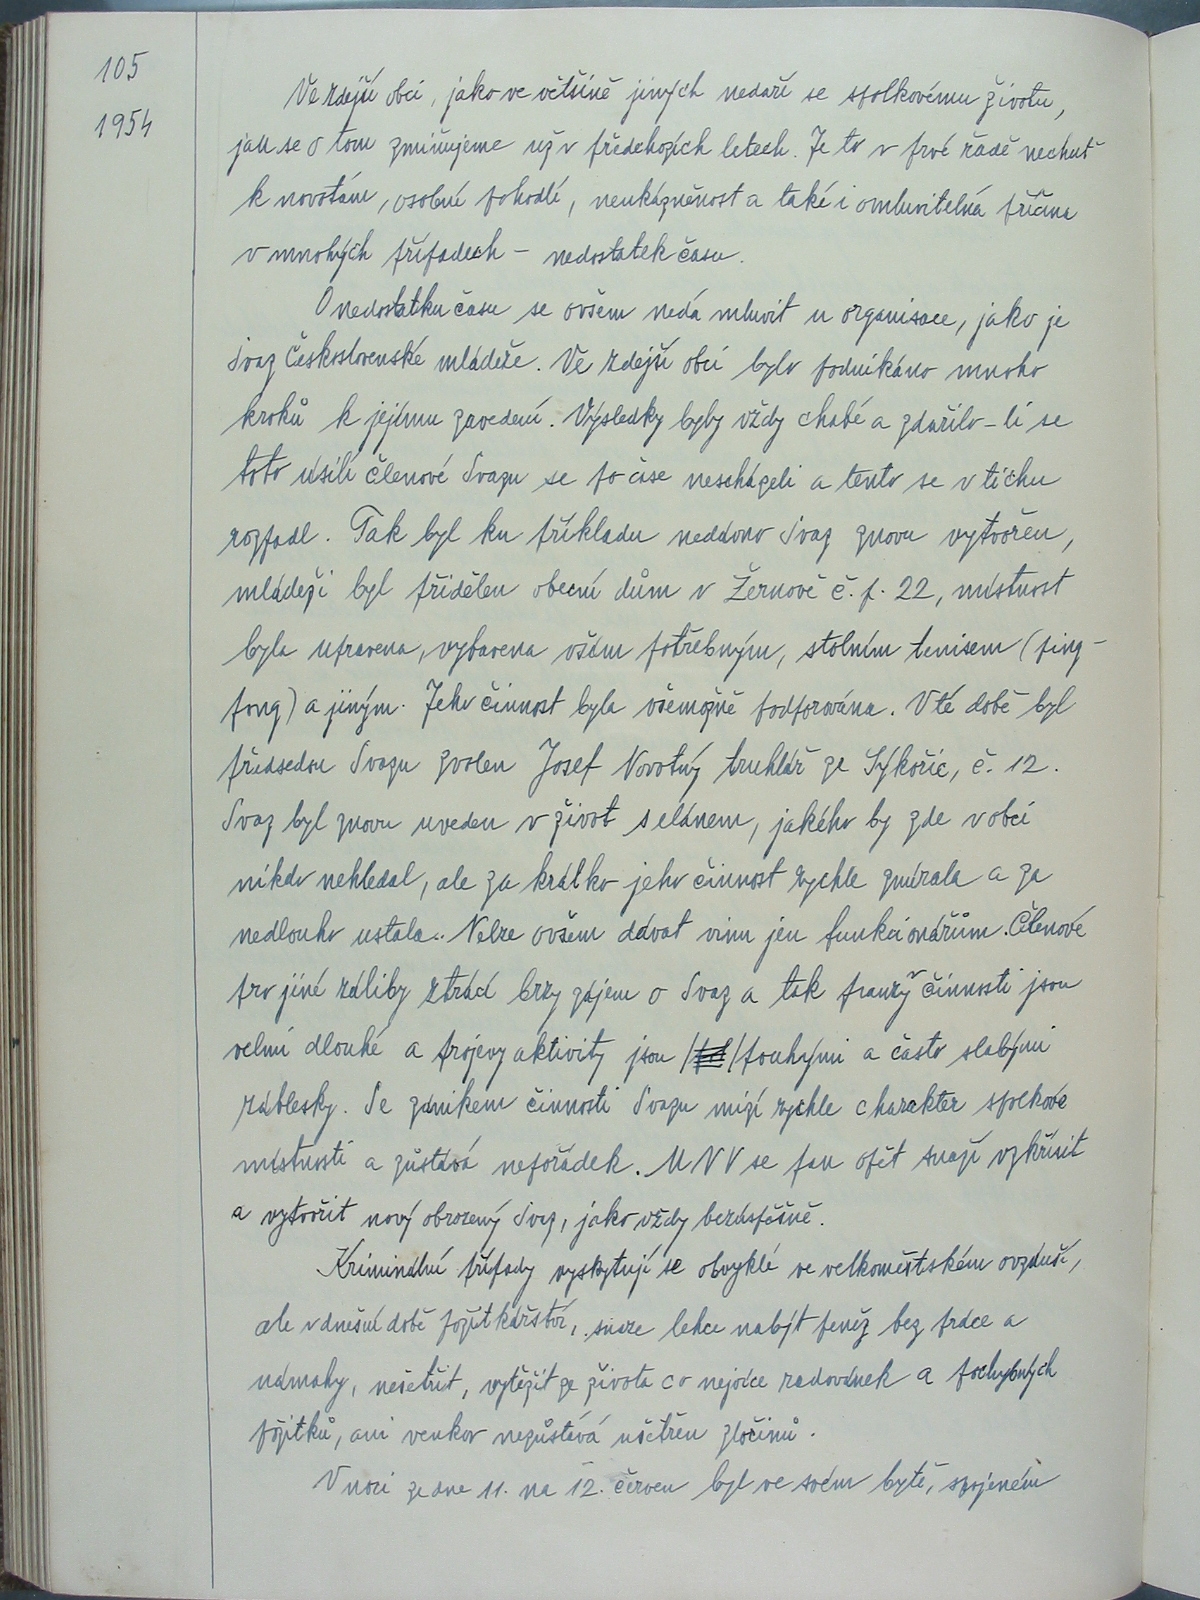 105
1954
Ve zdejší obci, jako ve většině jiných nedaří se spolkovému životu,
jak se o tom zmiňujeme už v předchozích letech. Je to v prvé řadě nechuť
k novotám, osobní pohodlí, neukázněnost a také i omluvitelná příčina
v mnohých případech – nedostatek času.
O nedostatku času se ovšem nedá mluvit u organisace, jako je
Svaz Československé mládeže. Ve zdejší obci bylo podnikáno mnoho
kroků k jejímu zavedení. Výsledky byly vždy chabé a zdařilo-li se
toto úsilí členové Svazu se po čase nescházeli a tento se v tichu
rozpadl. Tak byl ku příkladu nedávno Svaz znovu vytvořen,
mládeži byl přidělen obecní dům v Žernově č. p. 22, místnost
byla upravena, vybavena vším potřebným, stolním tenisem (ping-
pong) a jiným. Jeho činnost byla všemožně podporována. V té době byl
předsedou Svazu zvolen Josef Novotný truhlář ze Sýkořic, č. 12.
Svaz byl znovu uveden v život s elánem, jakého by zde v obci
nikdo nehledal, ale za krátko jeho činnost rychle zmírala a za
nedlouho ustala.. Nelze ovšem dávat vinu jen funkcionářům. Členové
pro jiné záliby ztrácí brzy zájem o Svaz a tak pauzy činnosti jsou
velmi dlouhé a projevy aktivity jsou pouhými a často slabými
záblesky. Se zánikem činnosti Svazu mizí rychle charakter spolkové
místnosti a zůstává nepořádek. MNV se pak opět snaží vzkřísit
a vytvořit nový obrozený Svaz, jako vždy bezúspěšně.
Kriminální případy vyskytují se obvyklé ve velkoměstském ovzduší,
ale v dnešní době požitkářství, snaze lehce nabýt peněz bez práce a
námahy, nešetřit, vytěžit ze života co nejvíce radovánek a pochybných
požitků, ani venkov nezůstává ušetřen zločinů.
V noci ze dne 11. na 12. červen byl ve svém bytě, spojeném